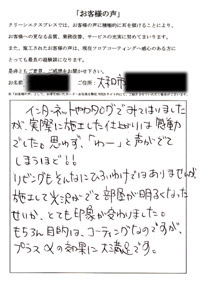 「お客様の声」
クリーンエキスプレスでは、お客様の声に積極的に耳を傾けることにより、
お客様への更なる品質、業務改善、サービスの充実に努めてまいります。
また、施工されたお客様の声は、現在フロアコーティングへ関心のある方に
とっても最良の経験談になります。
お名前
ご住所：大和市
インターネットやカタログでみてはいました
が、実際に施工した仕上がりは感動
でした。思わず、「わー」と声がでて
しまうほど！！
リビングもそんなにひろいわけではありませんが
施工して光沢がでて部屋が明るくなった
せいか、とても印象が変わりました。
もちろん目的は、コーティングなのですが、
プラスαの効果に大満足です。